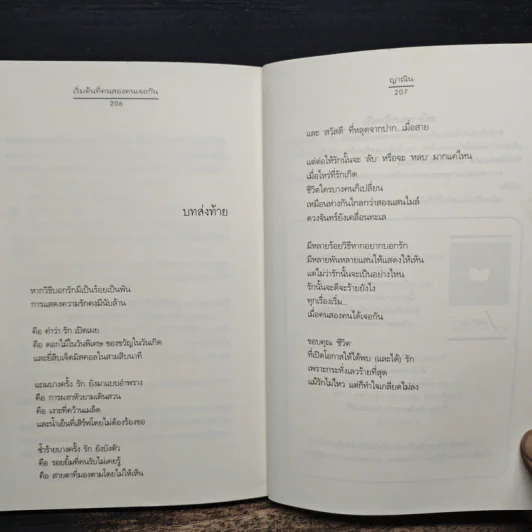 เริ่มต้นที่คนสองคนเจอกัน
206
บทส่งท้าย
หากวิธีบอกรักมีเป็นร้อยเป็นพัน
การแสดงความรักคงมีนับล้าน
คือ คำว่า รัก เปิดเผย
คือ ดอกไม้ในวันพิเศษ ของขวัญในวันเกิด
และยี่สิบเจ็ดมิสคอลในสามสิบนาที
แถมบางครั้ง รัก ยังมาแบบอำพราง
คือ การมงกหัวยามเดินสวน
คือ เงาะที่คว้านเมล็ด
และน้ำเย็นที่เสิร์ฟโดยไม่ต้องร้องขอ
ซ้ำร้ายบางครั้ง รัก ยังบังตัว
คือ รอยยิ้มที่คนรับไม่เคยรู้
คือ สายตาที่มองตามโดยไม่ให้เห็น
ญามิน
207
และ 'สวัสดี' ที่หลุดจากปาก...เมื่อสาย
แต่ต่อให้รักนั้นจะ 'ลับ' หรือจะ 'หลบ' มากแค่ไหน
เมื่อไหร่ที่รักเกิด
ชีวิตใครบางคนก็เปลี่ยน
เหมือนห่างกันไกลกว่าสองแสนไมล์
ดวงจันทร์ยังเคลื่อนทะเล
มีหลายร้อยวิธีหากอยากบอกรัก
มีหลายพันหลายแสนให้แสดงให้เห็น
แต่ไม่ว่ารักนั้นจะเป็นอย่างไหน
รักนั้นจะดีจะร้ายยังไง
ทุกเรื่องเริ่ม...
เมื่อคนสองคนได้เจอกัน
ขอบคุณ 'ชีวิต'
ที่เปิดโอกาสให้ได้พบ (และได้) รัก
เพราะกระทั่งเลวร้ายที่สุด
แม้รักไม่ไหว แต่ก็ทำใจเกลียดไม่ลง